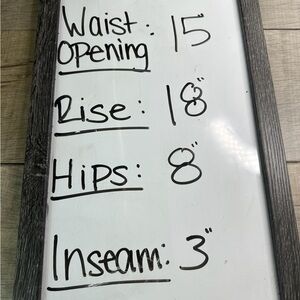 Waist: 15"
Opening
Rise: 18"
Hips: 8"
Inseam: 3"